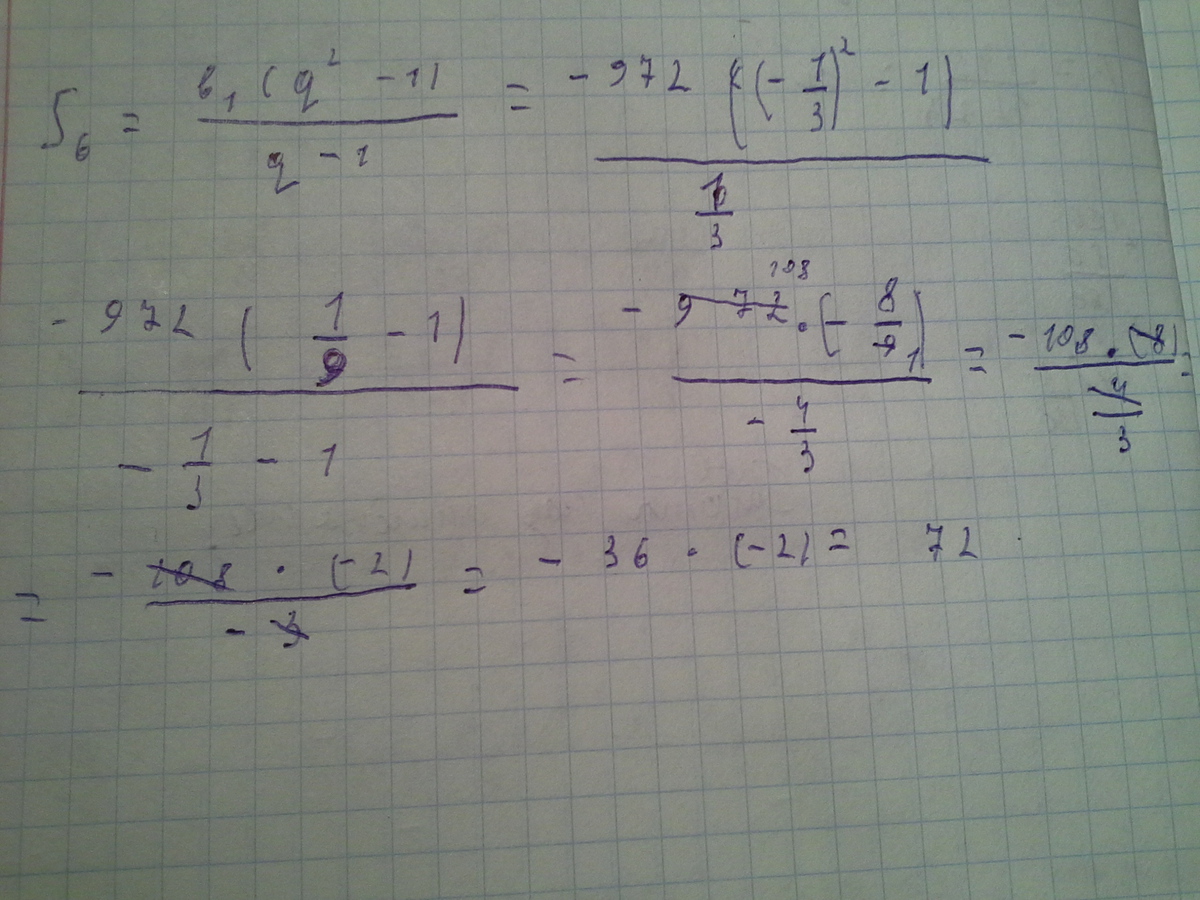 S₆ = в₁(q² - 1) / (q - 1) = -972 ((-1/3)² - 1) / (1/3)
-972 (1/9 - 1) / (-1/3 - 1) = -972 108 · (-8/9 1) / (-4/3) = -108 · (8) / (4/3) =
= -108 · (-2) / -3 = -36 · (-2) = 72